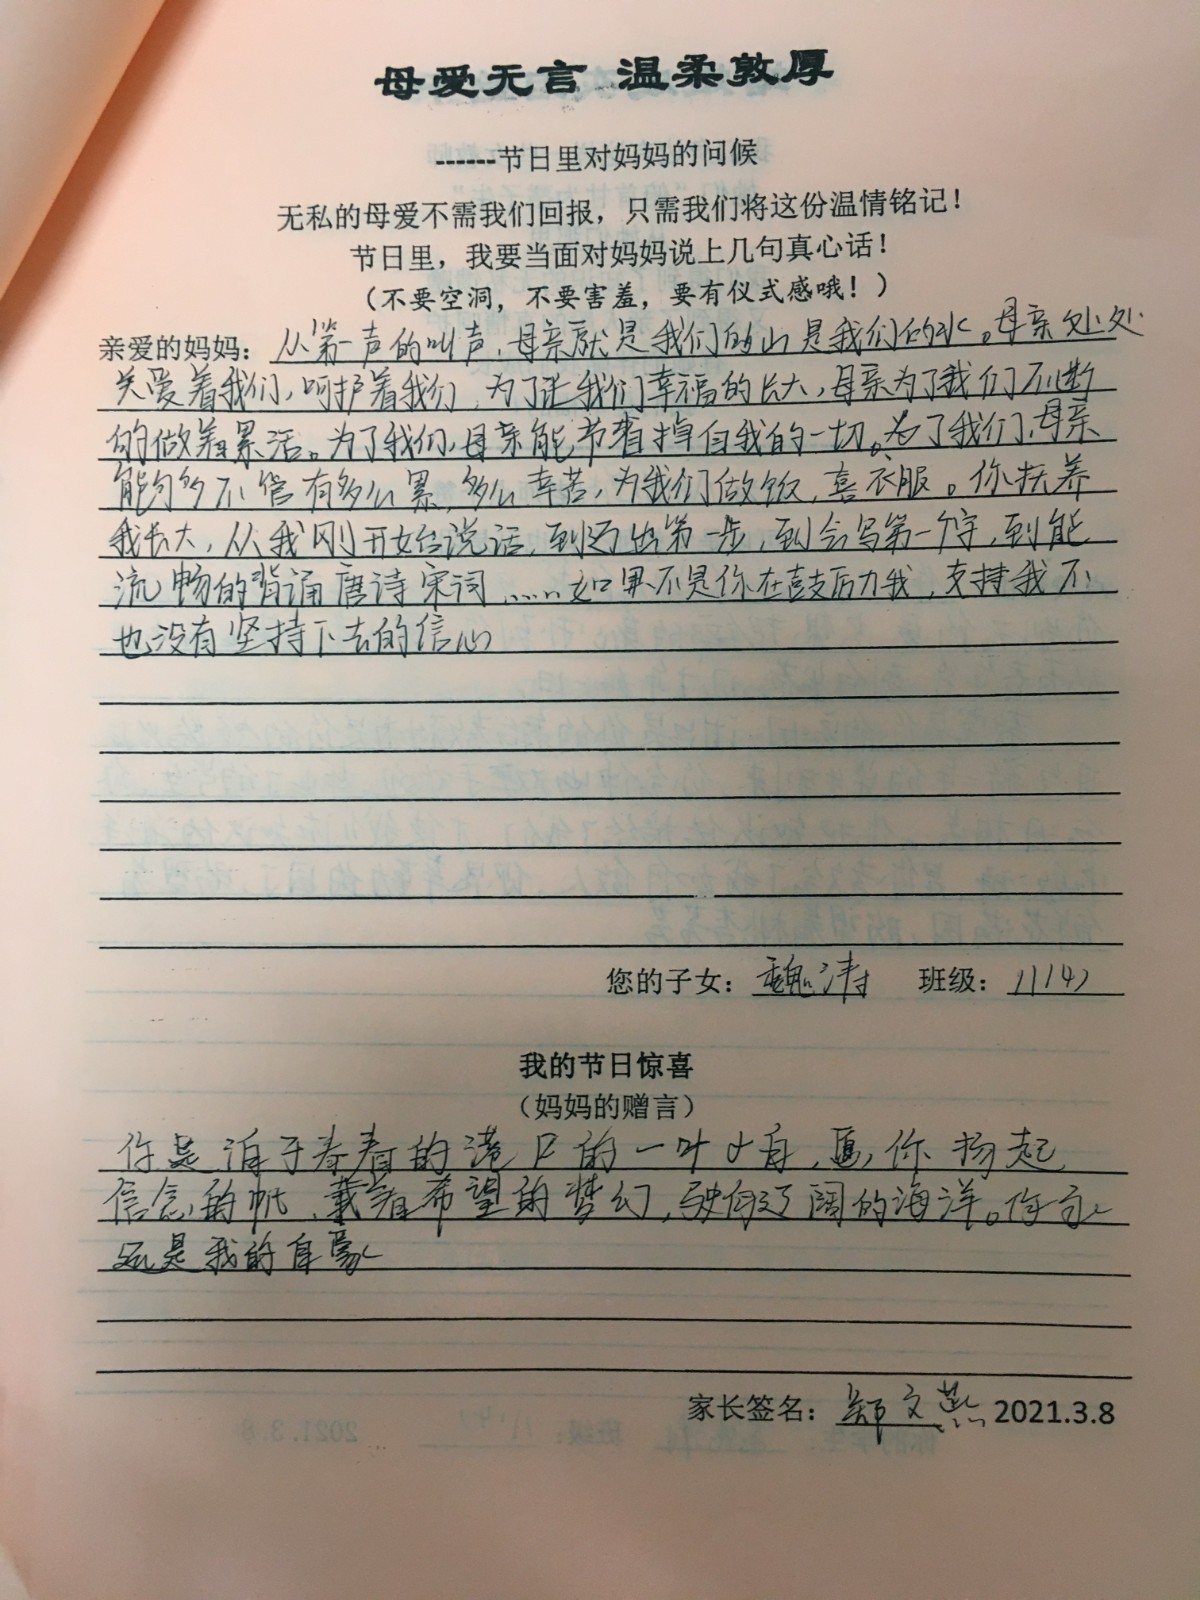 母爱无言 温柔敦厚
-----节日里对妈妈的问候
无私的母爱不需我们回报，只需我们将这份温情铭记！
节日里，我要当面对妈妈说上几句真心话！
（不要空洞，不要害羞，要有仪式感哦！）
亲爱的妈妈：从第一声的叫声，母亲就是我们的山是我们的水。母亲处处
关爱着我们，呵护着我们，为了让我们幸福的长大，母亲为了我们不断
的做着累活。为了我们，母亲能书着掉自我的一切。为了我们，母亲
能不管有多么累，多么辛苦，为我们做饭，喜衣服。你抚养
我长大，从我刚开始说话，到迈出第一步，到会写第一个字，到能
流畅的背诵唐诗宋词……如果不是你在鼓励我，支持我不
也没有坚持下去的信心
您的子女：魏清 班级：11(4)
我的节日惊喜
（妈妈的赠言）
你是泊于青春的港口的一叶小舟，愿你扬起
信念的帆，载着希望的梦幻，驶向辽阔的海洋。你永
远是我的骄傲
家长签名： 2021.3.8